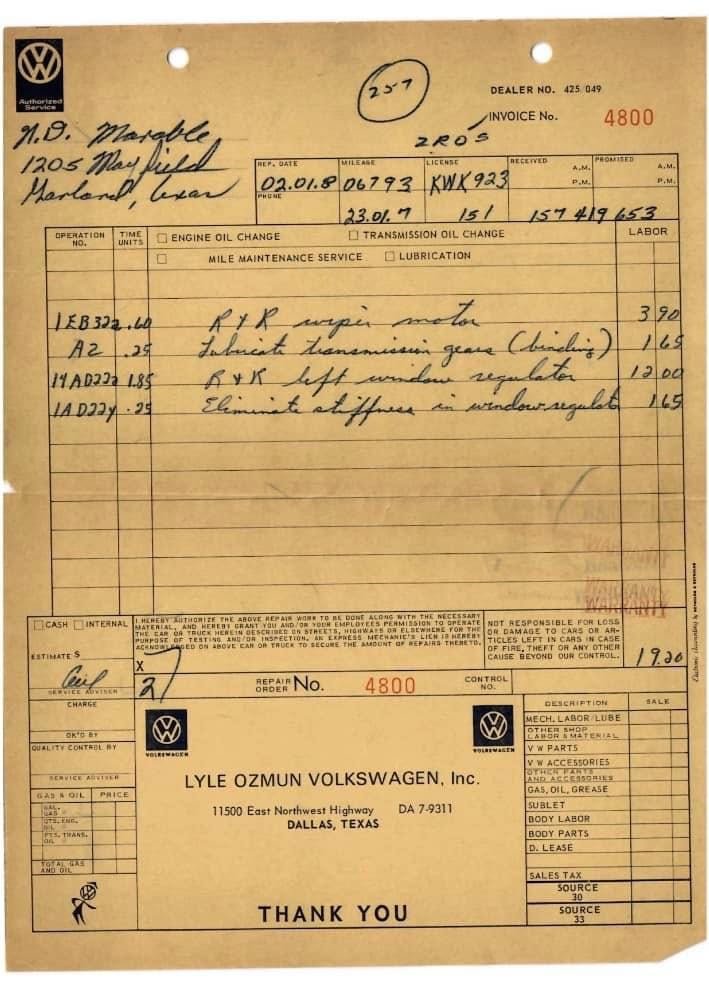 Authorized
Service
257
DEALER NO. 425 049
INVOICE No. 4800
N.D. Marable
1205 Mayfield
Garland, Texas
REP. DATE MILEAGE LICENSE RECEIVED A.M. P.M. PROMISED A.M. P.M.
02.01.8 06793 KWK923
PHONE
23.01.7 151 157 419 653
OPERATION NO. TIME UNITS ENGINE OIL CHANGE TRANSMISSION OIL CHANGE LABOR
MILE MAINTENANCE SERVICE LUBRICATION
1EB322 .60 R & R wiper motor 3 90
A2 .25 Lubricate transmission gears (binding) 1 65
1.85 R & R left window regulator 12 00
.25 Eliminate stiffness in window regulat 1 65
WARRANTY
WARRANTY
WARRANTY
CASH INTERNAL
I HEREBY AUTHORIZE THE ABOVE REPAIR WORK TO BE DONE ALONG WITH THE NECESSARY
MATERIAL, AND HEREBY GRANT YOU AND/OR YOUR EMPLOYEES PERMISSION TO OPERATE
THE CAR OR TRUCK HEREIN DESCRIBED ON STREETS, HIGHWAYS OR ELSEWHERE FOR THE
PURPOSE OF TESTING AND/OR INSPECTION, AN EXPRESS MECHANIC'S LIEN IS HEREBY
ACKNOWLEDGED ON ABOVE CAR OR TRUCK TO SECURE THE AMOUNT OF REPAIRS THERETO.
X
NOT RESPONSIBLE FOR LOSS
OR DAMAGE TO CARS OR AR-
TICLES LEFT IN CARS IN CASE
OF FIRE, THEFT OR ANY OTHER
CAUSE BEYOND OUR CONTROL.
19.20
ESTIMATE $
SERVICE ADVISER
27
REPAIR ORDER No. 4800 CONTROL NO.
CHARGE
OK'D BY
QUALITY CONTROL BY
SERVICE ADVISER
GAS & OIL PRICE
GAL. GAS
QTS. ENG. OIL
PTS. TRANS. OIL
TOTAL GAS AND OIL
VOLKSWAGEN VOLKSWAGEN
LYLE OZMUN VOLKSWAGEN, Inc.
11500 East Northwest Highway DA 7-9311
DALLAS, TEXAS
THANK YOU
DESCRIPTION SALE
MECH. LABOR/LUBE
OTHER SHOP LABOR & MATERIAL
V W PARTS
V W ACCESSORIES
OTHER PARTS AND ACCESSORIES
GAS, OIL, GREASE
SUBLET
BODY LABOR
BODY PARTS
D. LEASE
SALES TAX
SOURCE
30
SOURCE
33